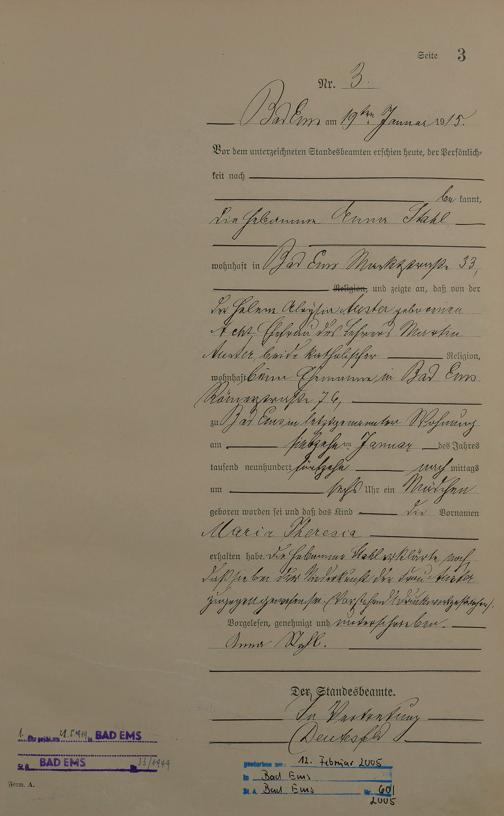 Seite 3
Nr. 3.
Bad Ems am 19ten Januar 1915.
Vor dem unterzeichneten Standesbeamten erschien heute, der Persönlich-
keit nach
bekannt,
die Hebamme Anna Stahl
wohnhaft in Bad Ems Marktstraße 33,
Religion, und zeigte an, daß von der
Ehefrau des Lehrers Martin
beide katholischer Religion,
wohnhaft beim Ehemanne in Bad Ems
Römerstraße 76,
zu Bad Ems in letztgenannter Wohnung
am Januar des Jahres
tausend neunhundert fünfzehn nach mittags
um sechs Uhr ein Mädchen
geboren worden sei und daß das Kind die Vornamen
Maria Theresia
erhalten habe. Die Hebamme Stahl erklärte noch,
daß sie bei der Niederkunft der Frau
zugegen gewesen sei.
Vorgelesen, genehmigt und unterschrieben.
Anna Stahl.
Der Standesbeamte.
In Vertretung
1. in BAD EMS
St. A. BAD EMS Nr.
gestorben am: 12. Februar 2005
in Bad Ems
St. A. Bad Ems Nr. 60/
2005
Form. A.